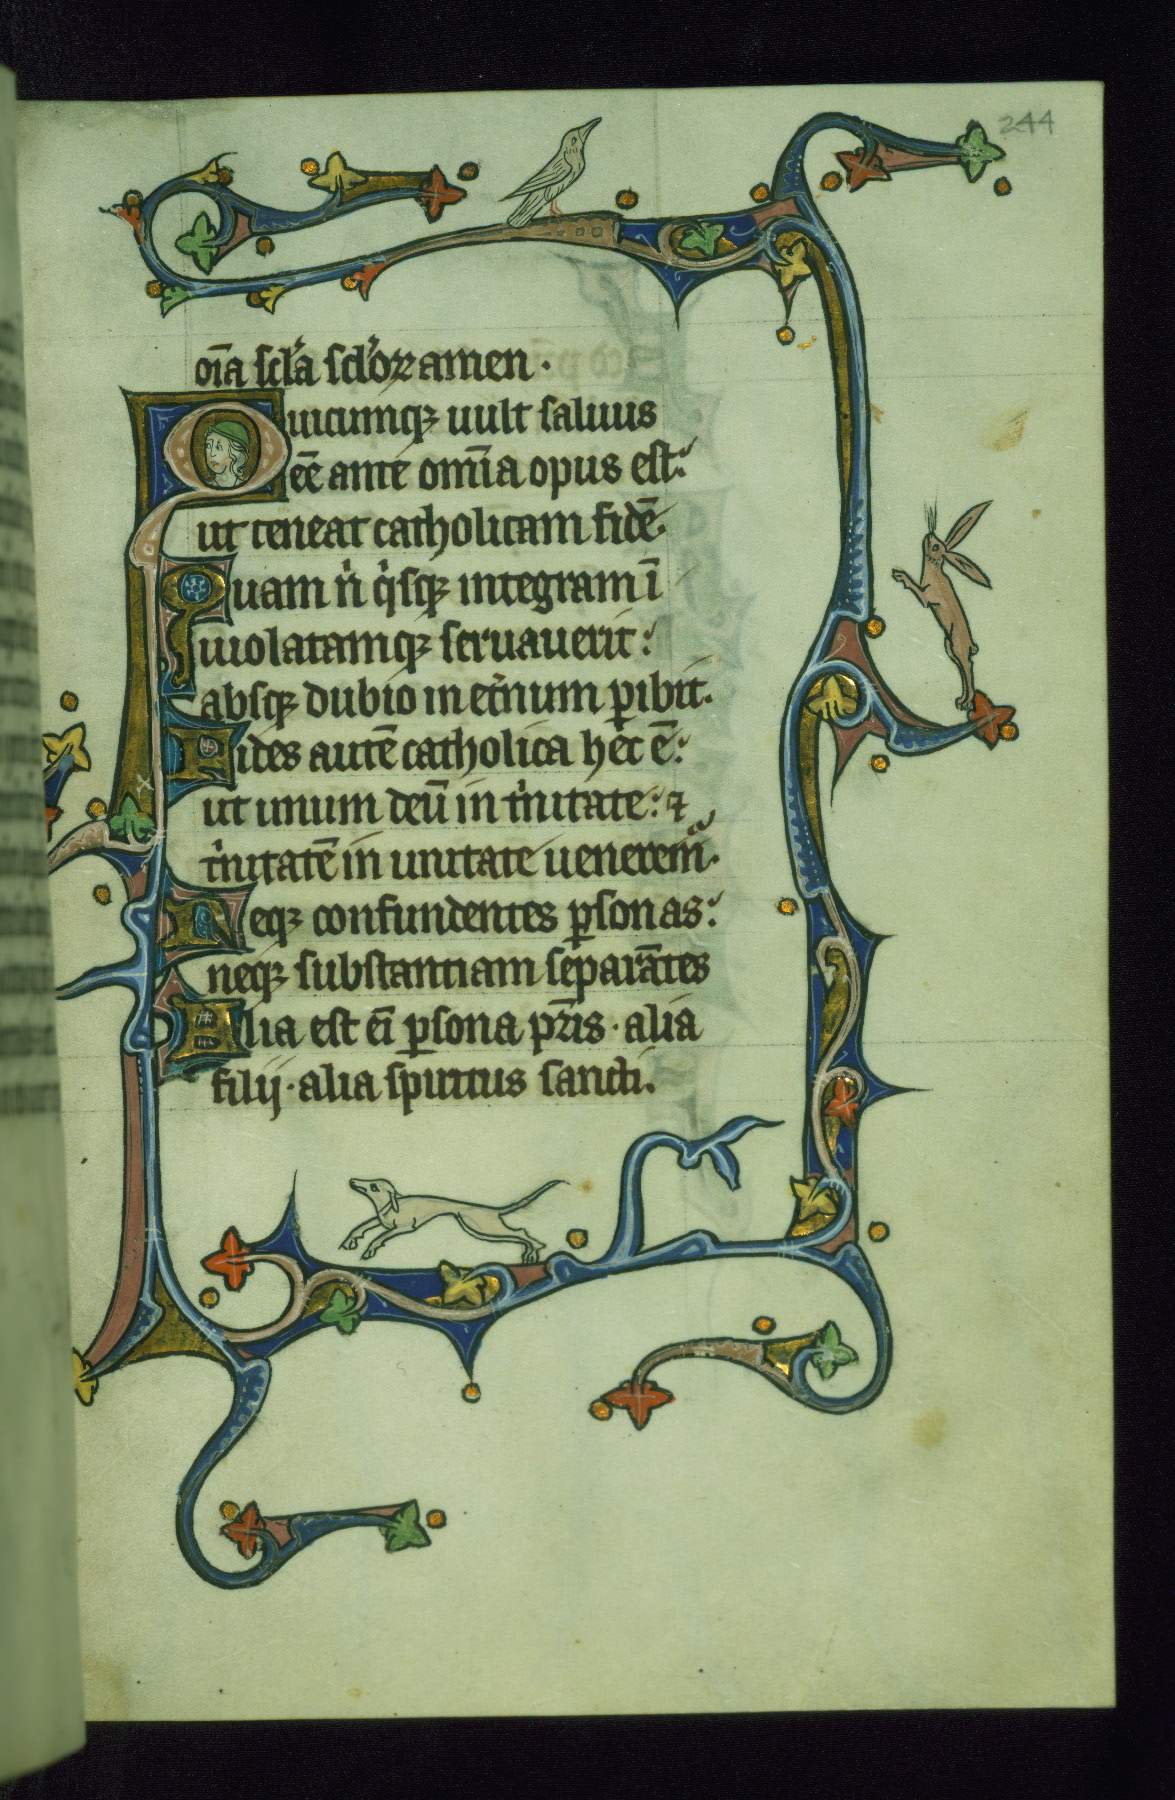 244
om̄a sc̄la sc̄loꝝ amen ·
Quicumqꝫ uult saluus
eē ante om̄ia opus est:
ut teneat catholicam fidē.
Quam n̍ q̍sqꝫ integram ī
uiolatamqꝫ seruauerit:
absqꝫ dubio in et̍num ꝑibit.
Fides autē catholica hec ē:
ut unum deū in t̍nitate: ⁊
t̍nitatē in unitate uenerem̄.
Neqꝫ confundentes ꝑsonas:
neqꝫ substantiam sepaꝛātes
Alia est eī ꝑsona pr̄is · alia
filij · alia spiritus sancti.